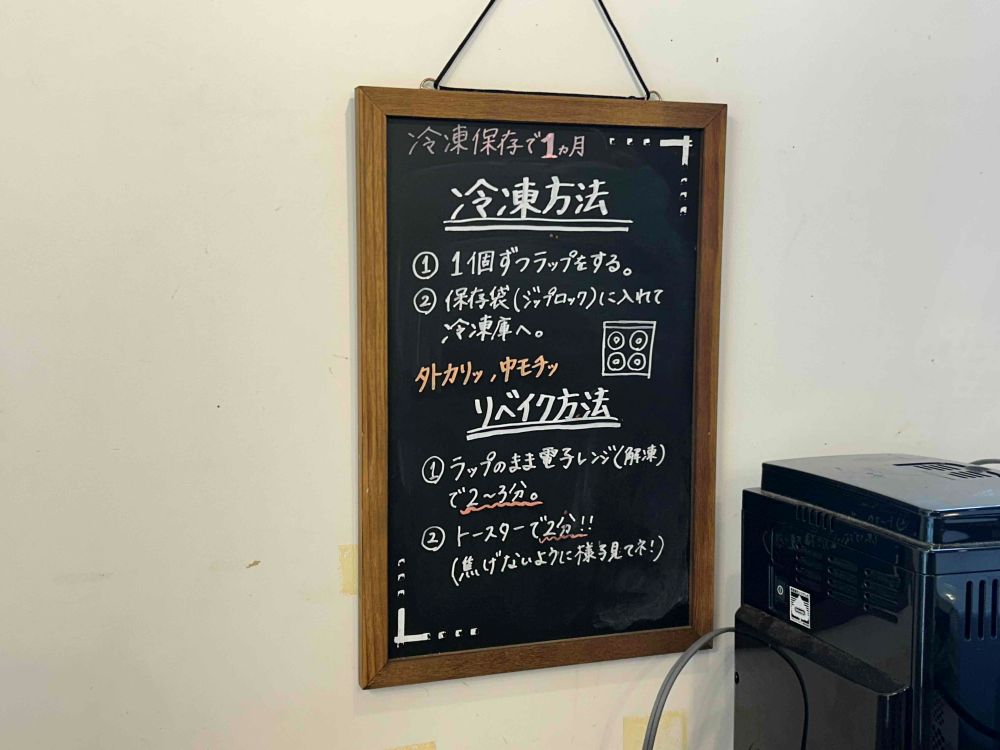 冷凍保存で1ヵ月
冷凍方法
① 1個ずつラップをする。
② 保存袋(ジップロック)に入れて
冷凍庫へ。
外カリッ,中モチッ
リベイク方法
① ラップのまま電子レンジ(解凍)
で2〜3分。
② トースターで2分!!
(焦げないように様子見てネ!)